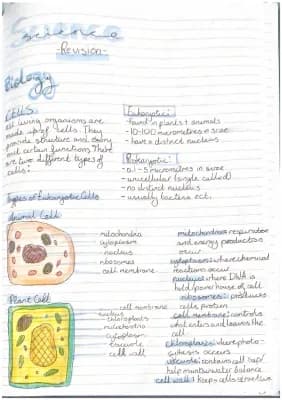 Science
-Revision-
Biology
CELLS
all living organisms are
made up of cells. They
provide structure and carry
out certain functions. There
are two different types of
cells:
Eukaryotic:
- found in plants + animals
- 10-100 micrometres in size
- have a distinct nucleus
Prokaryotic:
- 0.1-5 micrometres in size
- unicellular (single celled)
- no distinct nucleus
- usually bacteria ect.
Types of Eukaryotic Cells
Animal Cell
mitochondria
cytoplasm
nucleus
ribosomes
cell membrane
mitochondria: respiration
and energy production
occur
cytoplasm: where chemical
reactions occur
nucleus: where DNA is
held/power house of cell
ribosomes: produces
cells protein
cell membrane: controls
what enters and leaves the
cell
chloroplasts: where photo-
synthesis occurs
vacuole: contains cell sap/
help maintain water balance
cell wall: keeps cells structure
Plant Cell
cell membrane
nucleus
chloroplasts
mitochondria
cytoplasm
vacuole
cell wall